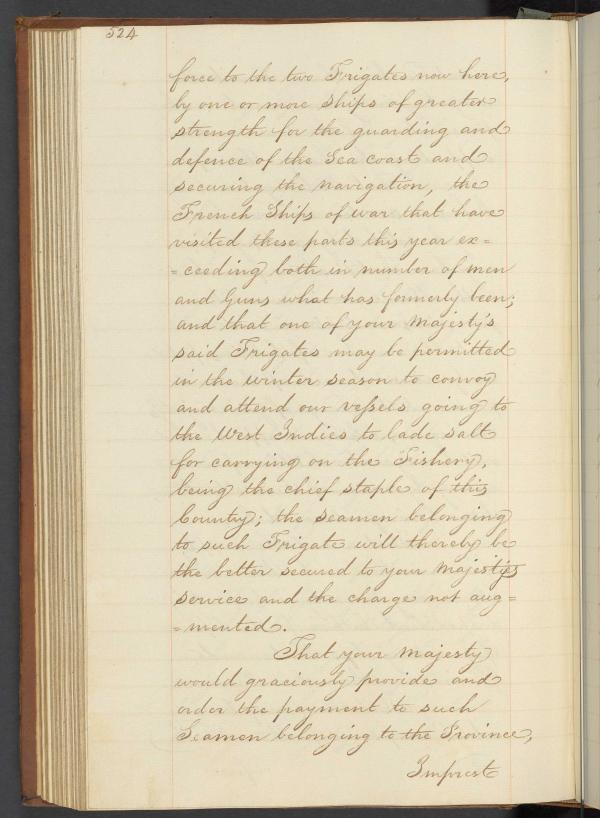 524
force to the two Frigates now here,
by one or more Ships of greater
strength for the guarding and
defence of the Sea coast and
securing the navigation, the
French Ships of war that have
visited these parts this year ex=
=ceeding both in number of men
and Guns what has formerly been;
and that one of your Majesty's
said Frigates may be permitted
in the winter season to convoy
and attend our vessels going to
the West Indies to lade salt
for carrying on the Fishery,
being the chief staple of this
County; the seamen belonging
to such Frigate will thereby be
the better secured to your Majesty's
service and the charge not aug=
=mented.
That your Majesty
would graciously provide and
order the payment to such
Seamen belonging to the Province,
Imprest